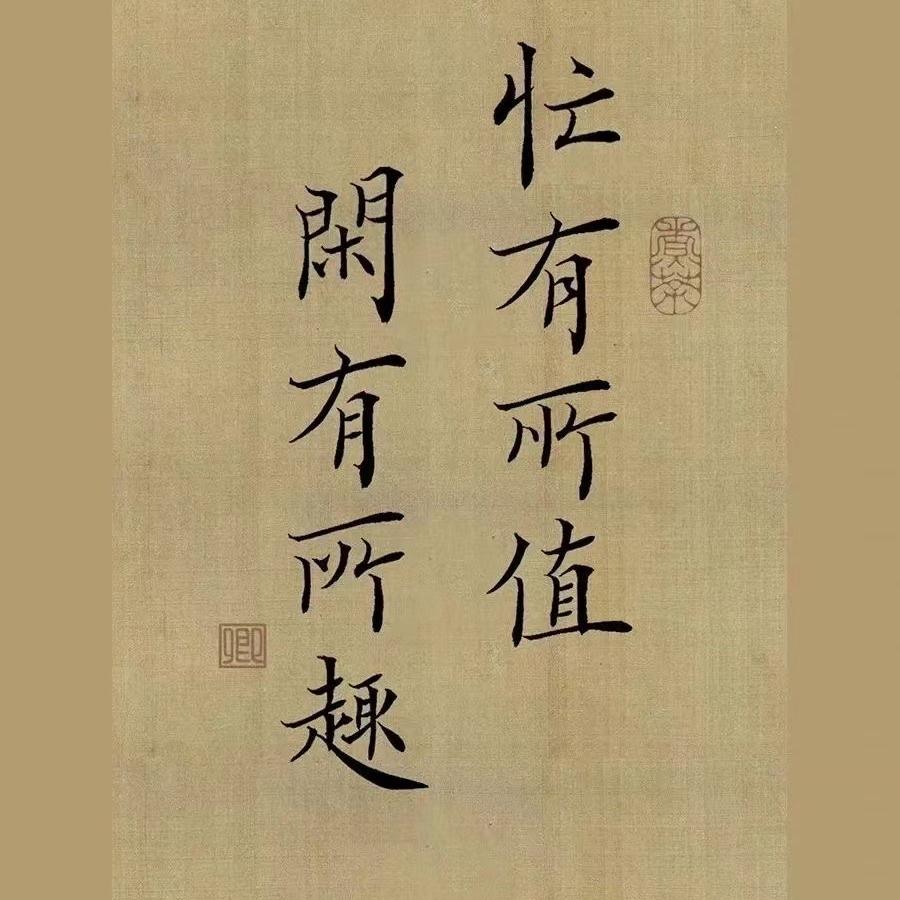 忙有所值
閑有所趣
卿